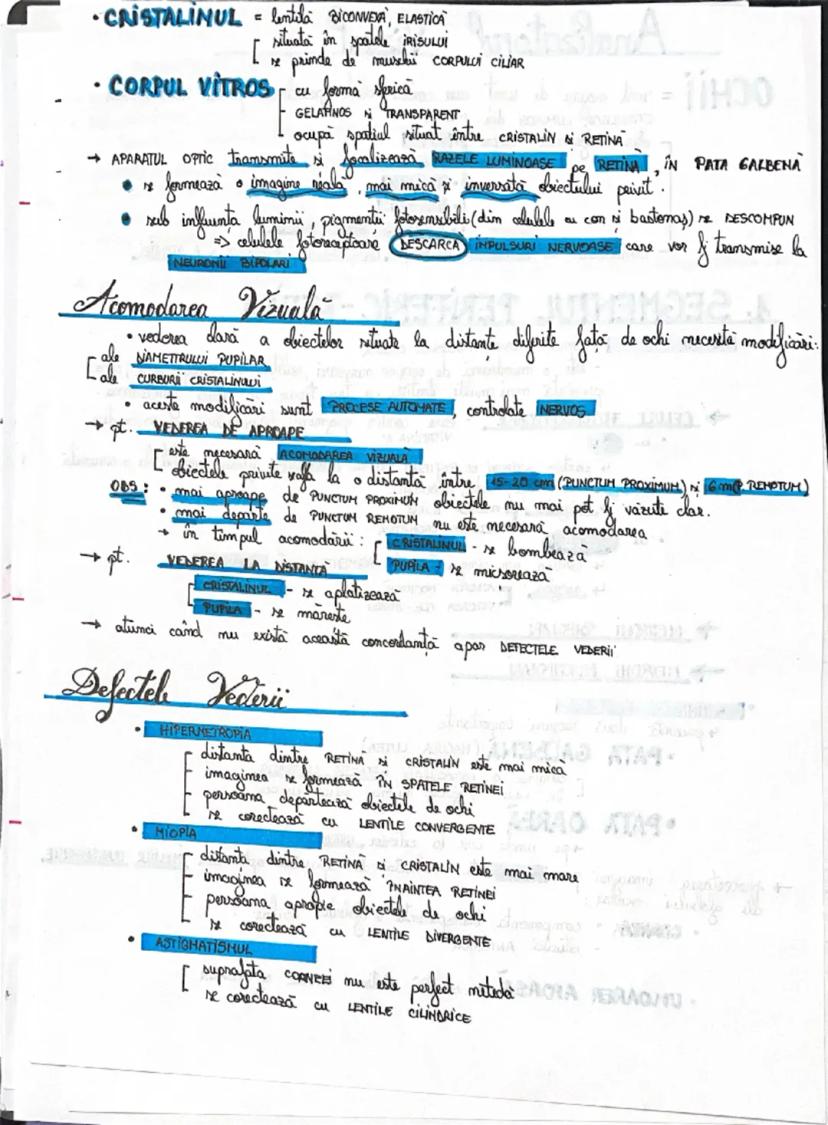 • CRISTALINUL = lentilă BICONVEXĂ, ELASTICĂ
situată în spatele IRISULUI
se prinde de mușchii CORPULUI CILIAR
• CORPUL VITROS
cu formă sferică
GELATINOS și TRANSPARENT
ocupă spațiul situat între CRISTALIN și RETINĂ
→ APARATUL OPTIC transmite și focalizează RAZELE LUMINOASE pe RETINĂ, ÎN PATA GALBENĂ
• se formează o imagine reală, mai mică și inversată obiectului privit.
• sub influența luminii, pigmenții fotosensibili (din celulele cu con și bastonaș) se DESCOMPUN
=> celulele fotoreceptoare DESCARCĂ IMPULSURI NERVOASE care vor fi transmise la
NEURONII BIPOLARI
Acomodarea Vizuală
• vederea clară a obiectelor situate la distanțe diferite față de ochi necesită modificări:
ale DIAMETRULUI PUPILAR
ale CURBURII CRISTALINULUI
• aceste modificări sunt PROCESE AUTOMATE, controlate NERVOS
→ pt. VEDEREA DE APROAPE
este necesară ACOMODAREA VIZUALĂ
obiectele privite se află la o distanță între 15-20 cm (PUNCTUM PROXIMUM) și 6 m (P. REMOTUM)
OBS: • mai aproape de PUNCTUM PROXIMUM obiectele nu mai pot fi văzute clar.
• mai departe de PUNCTUM REMOTUM nu este necesară acomodarea
→ în timpul acomodării: CRISTALINUL - se bombează
PUPILA - se micșorează
→ pt. VEDEREA LA DISTANȚĂ
CRISTALINUL - se aplatizează
PUPILA - se mărește
→ atunci când nu există această concordanță apar DEFECTELE VEDERII
Defectele Vederii
• HIPERMETROPIA
distanța dintre RETINĂ și CRISTALIN este mai mică
imaginea se formează ÎN SPATELE RETINEI
persoana depărtează obiectele de ochi
se corectează cu LENTILE CONVERGENTE
• MIOPIA
distanța dintre RETINĂ și CRISTALIN este mai mare
imaginea se formează ÎNAINTEA RETINEI
persoana apropie obiectele de ochi
se corectează cu LENTILE DIVERGENTE
• ASTIGMATISMUL
suprafața CORNEEI nu este perfect netedă
se corectează cu LENTILE CILINDRICE